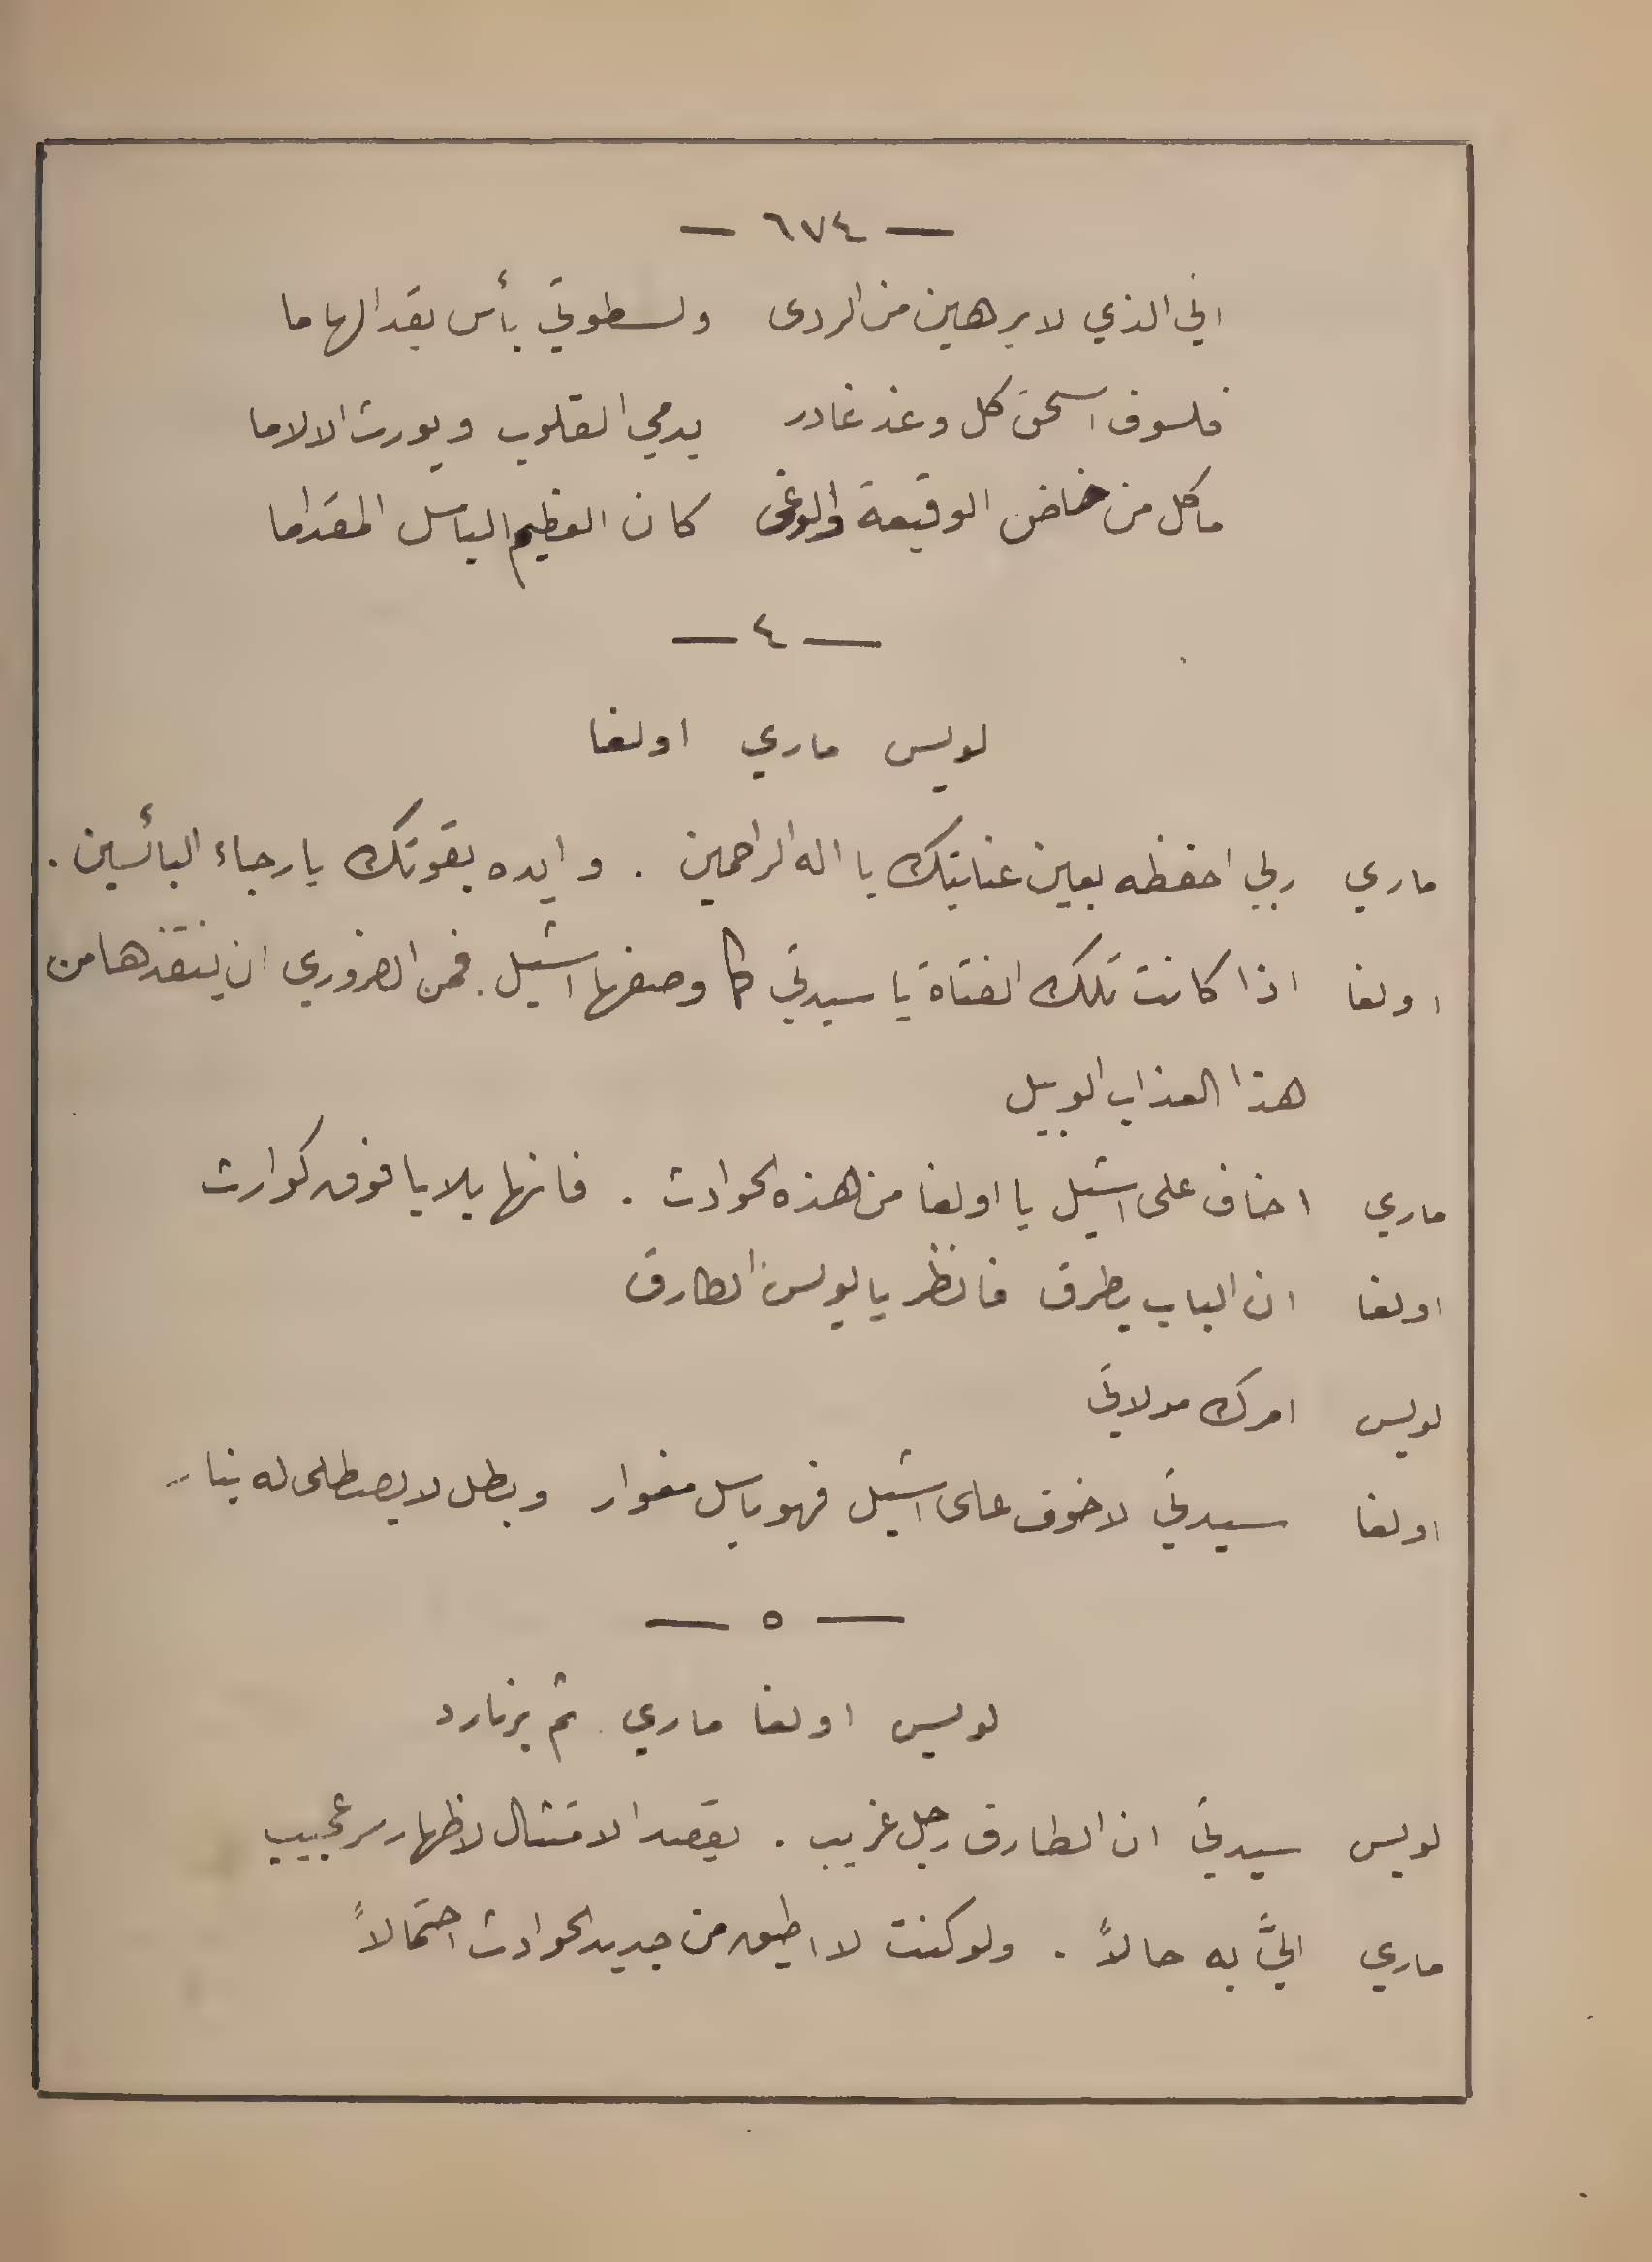 — ٦٧٤ —
اني الذي لا يرهبن من الردى ولسطوتي بأس يقد الهاما
فلسوف اسحق كل وغد غادر يدمي القلوب ويورث الالاما
ما كل من خاض الوقيعة والوغى كان العظيم الباسل المقداما
— ٤ —
لويس ماري اولغا
ماري ربي احفظه بعين عنايتك يا اله الراحمين . وايده بقوتك يا رجاء البائسين .
اولغا اذا كانت تلك الفتاة يا سيدتي كما وصفها اشيل . فمن الضروري ان ينقذها من
هذا العذاب الوبيل
ماري اخاف على اشيل يا اولغا من هذه الحوادث . فانها بلايا فوق كوارث
اولغا ان الباب يطرق فانظر يا لويس من الطارق
لويس امرك مولاتي
اولغا سيدتي لا خوف على اشيل فهو باسل مغوار وبطل لا يصطلى له بنار
— ٥ —
لويس اولغا ماري ثم برنارد
لويس سيدتي ان الطارق رجل غريب . يقصد الامتثال لاظهار سر عجيب
ماري اليَّ به حالاً . ولو كنت لا اطيق من جديد الحوادث احتمالاً